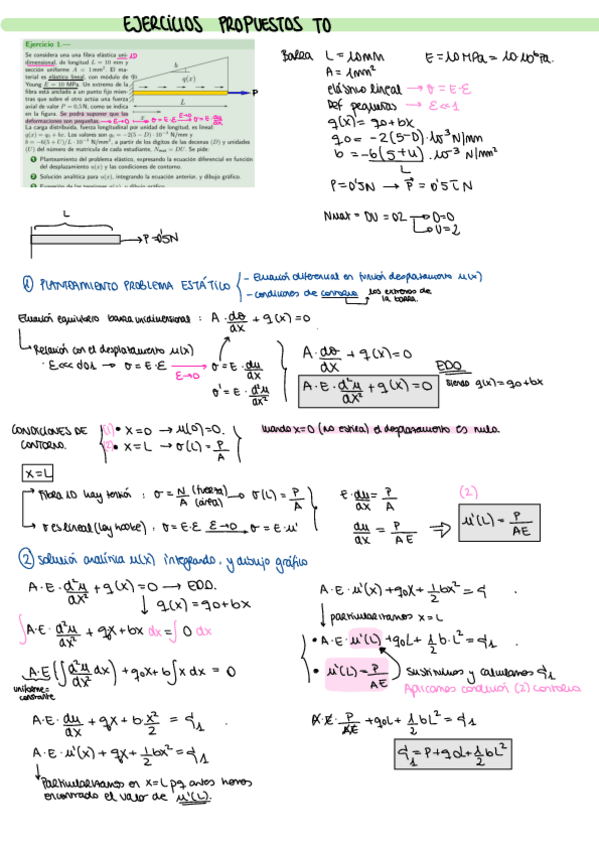 EJERCICIOS PROPUESTOS T0
Ejercicio 1.—
Se considera una una fibra elástica uni- 1D
dimensional, de longitud L = 10 mm y
sección uniforme A = 1 mm². El ma-
terial es elástico lineal, con módulo de
Young E = 10 MPa. Un extremo de la
fibra está anclado a un punto fijo mien-
tras que sobre el otro actúa una fuerza
axial de valor P = 0,5 N, como se indica
en la figura. Se podrá suponer que las
deformaciones son pequeñas.
b
q(x)
P
L
La carga distribuida, fuerza longitudinal por unidad de longitud, es lineal:
q(x) = q₀ + bx. Los valores son q₀ = −2(5 − D) · 10⁻³ N/mm y
b = −6(5 + U)/L · 10⁻³ N/mm², a partir de los dígitos de las decenas (D) y unidades
(U) del número de matrícula de cada estudiante, Nmat = DU. Se pide:
1 Planteamiento del problema elástico, expresando la ecuación diferencial en función
del desplazamiento u(x) y las condiciones de contorno.
2 Solución analítica para u(x), integrando la ecuación anterior, y dibujo gráfico.
Barra L = 10mm E = 10 MPa = 10·10⁶ Pa.
A = 1mm²
elástico lineal → σ = E·ε
Def pequeñas → ε<<1
q(x) = q0 + bx
q0 = -2(5-D)·10⁻³ N/mm
b = -6(5+U)/L ·10⁻³ N/mm²
P = 0'5N
Nmat = DU = 02 → D=0
U=2
L
→ P=0'5N
1 PLANTEAMIENTO PROBLEMA ESTÁTICO - Ecuación diferencial en función desplazamiento u(x)
- condiciones de contorno los extremos de
la barra.
Ecuación equilibrio barra unidimensional : A·dσ/dx + q(x) = 0
Relación con el desplazamiento u(x)
σ = E·ε ε→0 σ = E·du/dx
σ' = E·d²u/dx²
A·dσ/dx + q(x) = 0
EDO
A·E·d²u/dx² + q(x) = 0 siendo q(x) = q0+bx
CONDICIONES DE CONTORNO.
(1) • x=0 → u(0)=0. cuando x=0 (no estira) el desplazamiento es nulo.
(2) • x=L → σ(L) = P/A
x=L
Fibra 1D hay tensión : σ = N/A (fuerza) (área) → σ(L) = P/A
σ es lineal (ley hooke) : σ = E·ε ε→0 σ = E·u'
E·du/dx = P/A
du/dx = P/AE ⇒ (2) u'(L) = P/AE
2 solución analítica u(x) integrando, y dibujo gráfico
A·E·d²u/dx² + q(x) = 0 → EDO.
↓ q(x) = q0+bx
∫A·E·d²u/dx² + q0 + bx dx = ∫0 dx
A·E(∫d²u/dx² dx) + q0x + b∫x dx = 0
uniforme=
constante
A·E·du/dx + q0x + b·x²/2 = C1
A·E·u'(x) + q0x + 1/2 bx² = C1
Particularizamos en x=L pq antes hemos
encontrado el valor de u'(L).
A·E·u'(x) + q0x + 1/2 bx² = C1
↓ particularizamos x=L
• A·E·u'(L) + q0L + 1/2 b·L² = C1
• u'(L) = P/AE sustituimos y calculamos C1
Aplicamos condición (2) contorno
A·E·P/AE + q0L + 1/2 bL² = C1
C1 = P + q0L + 1/2 bL²